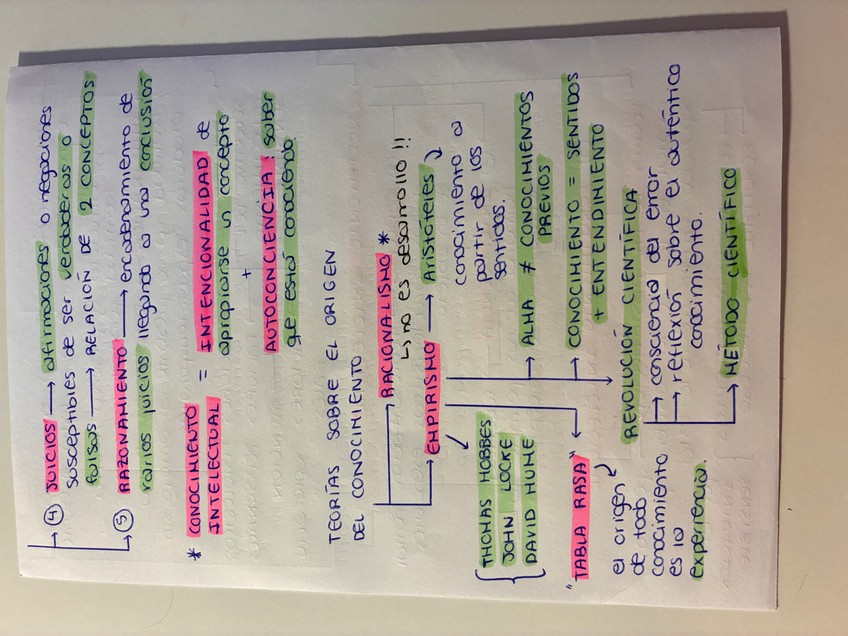 ④ JUICIOS → afirmaciones o negaciones
susceptibles de ser verdaderas o
falsas → RELACIÓN DE 2 CONCEPTOS
⑤ RAZONAMIENTO → encadenamiento de
varios juicios llegando a una conclusión
* CONOCIMIENTO = INTENCIONALIDAD de
INTELECTUAL apropiarse un concepto
+
AUTOCONCIENCIA: saber
que estás conociendo
TEORÍAS SOBRE EL ORIGEN
DEL CONOCIMIENTO
→ RACIONALISMO *
↳ no es desarrollo !!
→ EMPIRISMO → Aristóteles
conocimiento a
partir de los
sentidos.
THOMAS HOBBES
JOHN LOCKE
DAVID HUME
→ ALMA ≠ CONOCIMIENTOS
PREVIOS
→ CONOCIMIENTO = SENTIDOS
+ ENTENDIMIENTO
"TABLA RASA"
el origen
de todo
conocimiento
es la
experiencia.
REVOLUCIÓN CIENTÍFICA
→ consciencia del error
→ reflexión sobre el auténtico
conocimiento.
→ MÉTODO CIENTÍFICO